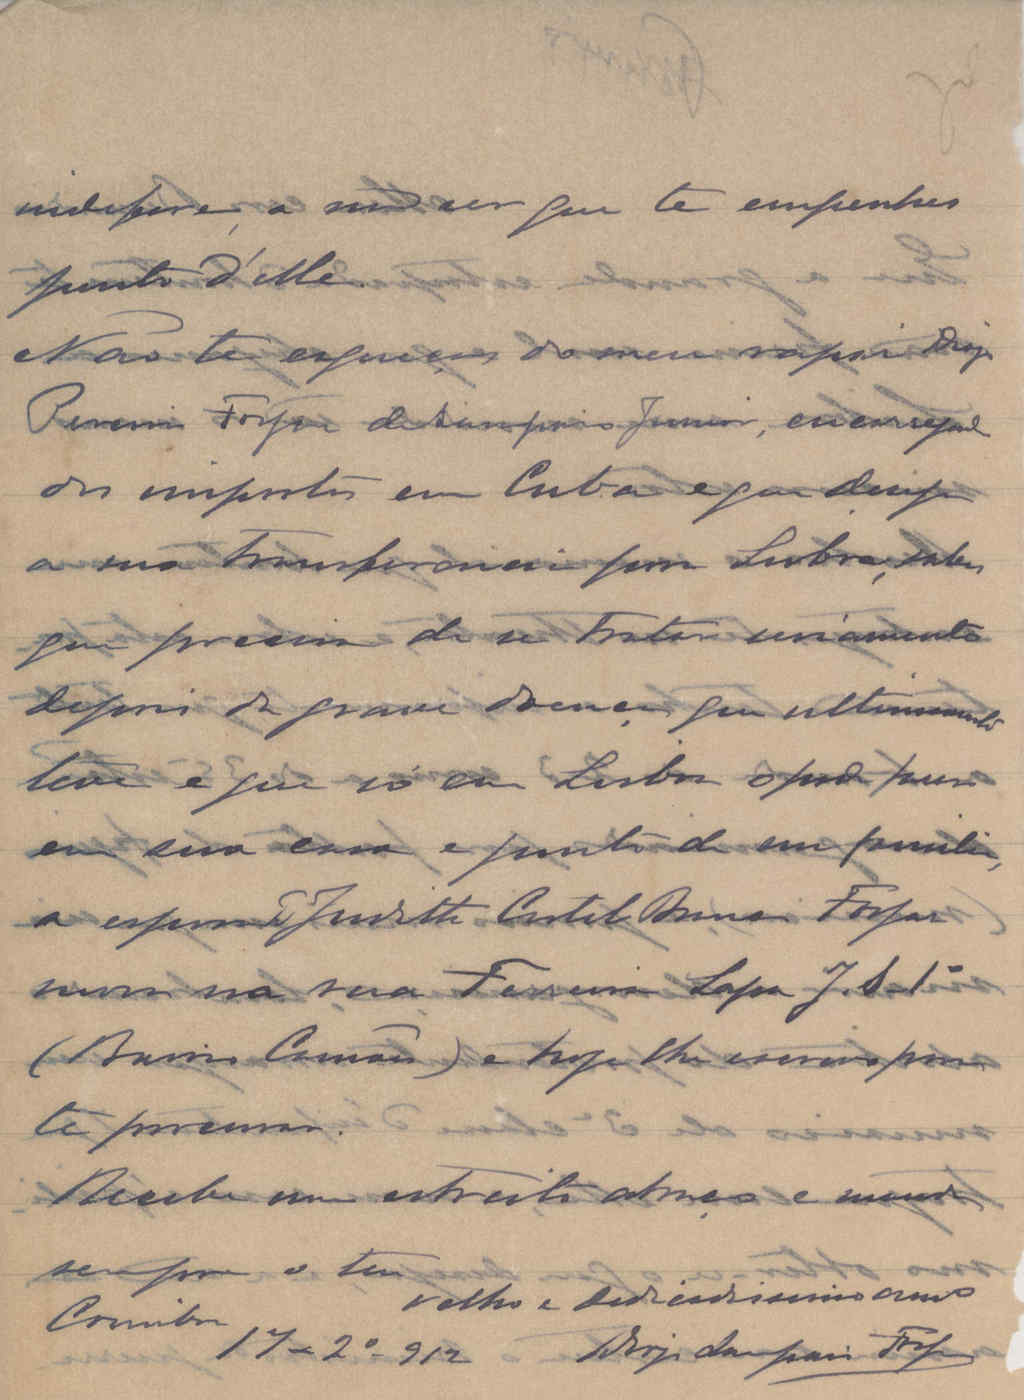 indefere, a não ser que te empenhes
junto d'elle.
Não te esqueças do meu rapaz Diogo
Pereira Forjaz de Sampaio Junior, encarregado
dos impostos em Cuba e que deseja
a sua transferencia para Lisboa, sabes
que precisa de se tratar seriamente
depois da grave doença que ultimamente
teve e que só em Lisboa o pode fazer
em sua casa e junto de sua familia,
a esposa D. Judith Castel Branco Forjaz
mora na rua Ferreira Lapa J. S. 1º
(Bairro Camões) e hoje lhe escrevo para
te procurar.
Recebe um estreito abraço e manda
sempre o teu
velho e dedicadissimo amo
Coimbra
17-2º-912
Diogo Sampaio Forjaz